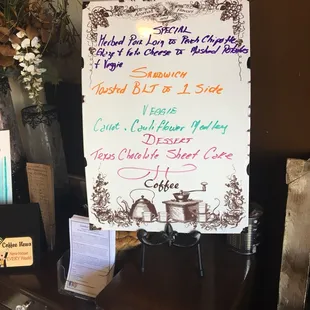 SPECIAL
Herbed Pork Loin w Peach Chipotle
& Feta Cheese w Mashed Potatoes
& Veggie
SANDWICH
Toasted BLT w 1 Side
VEGGIE
Carrot, Cauliflower Medley
DESSERT
Texas Chocolate Sheet Cake
Coffee
Coffee News